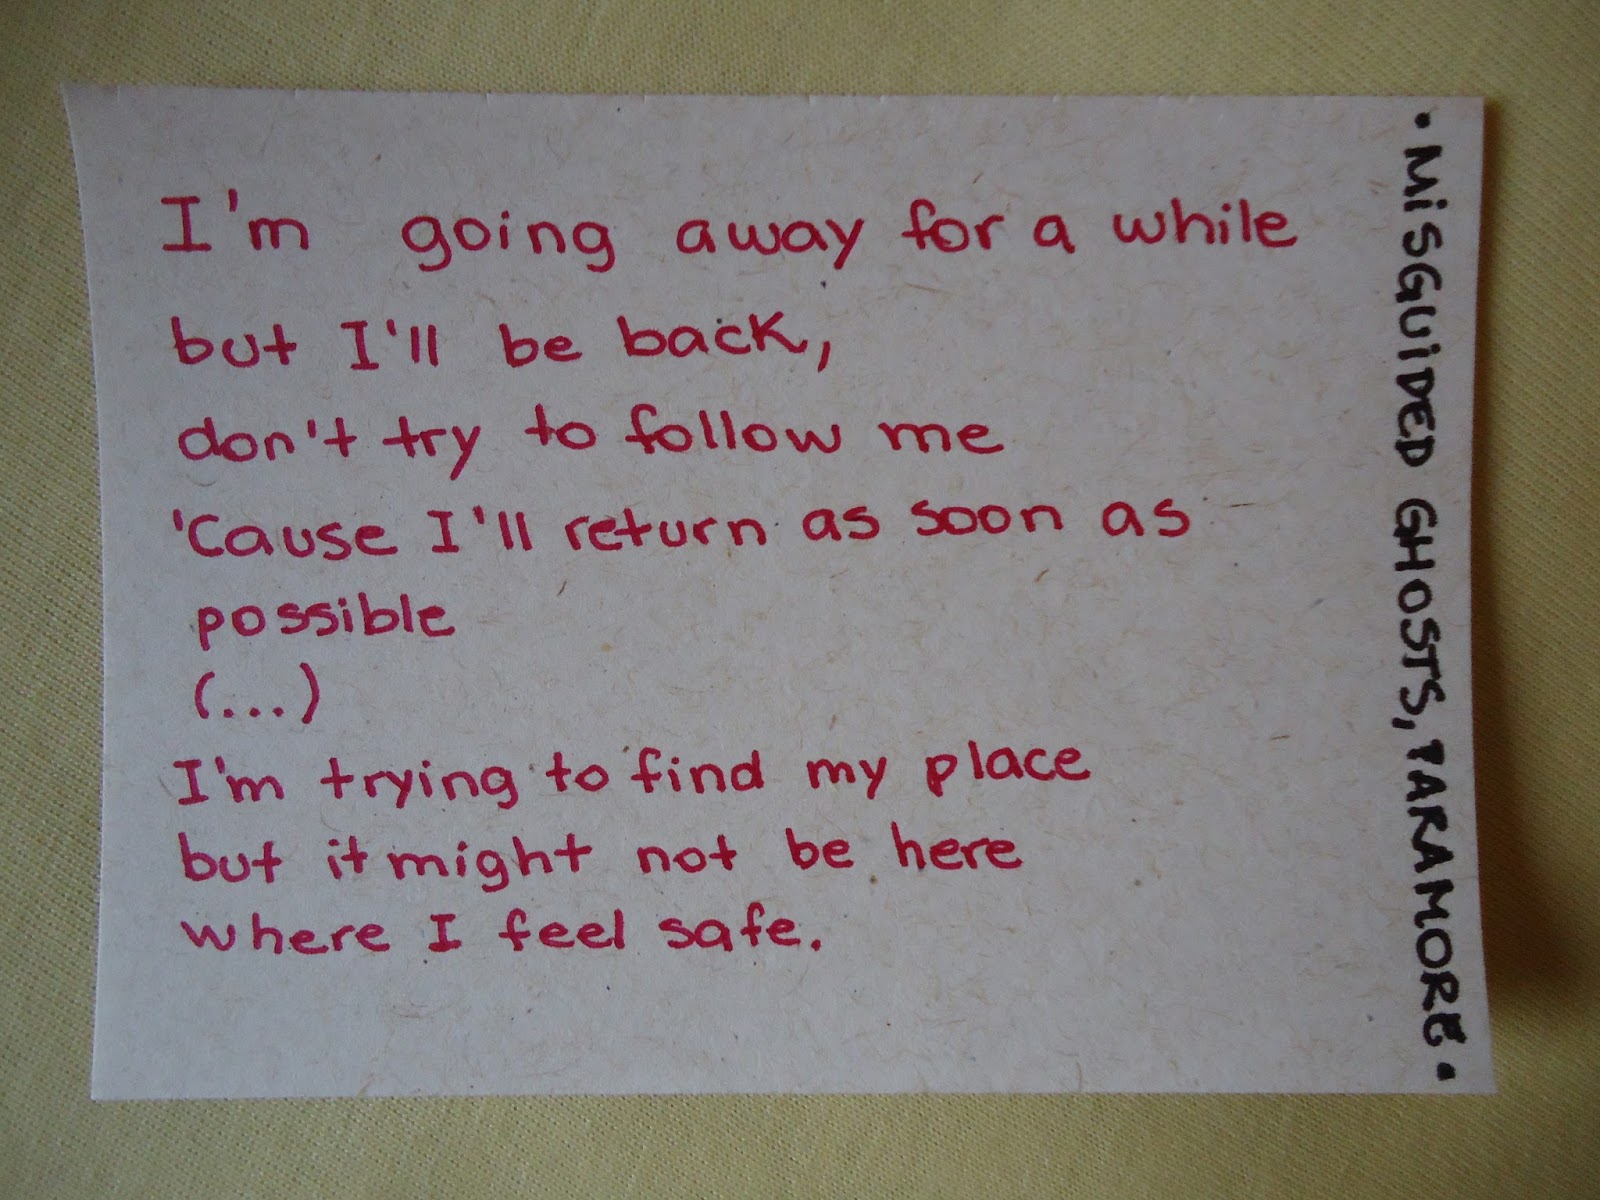 I'm going away for a while
but I'll be back,
don't try to follow me
'Cause I'll return as soon as
possible
(...)
I'm trying to find my place
but it might not be here
where I feel safe.
• MiSGUiDED GHOSTS, PARAMORE •